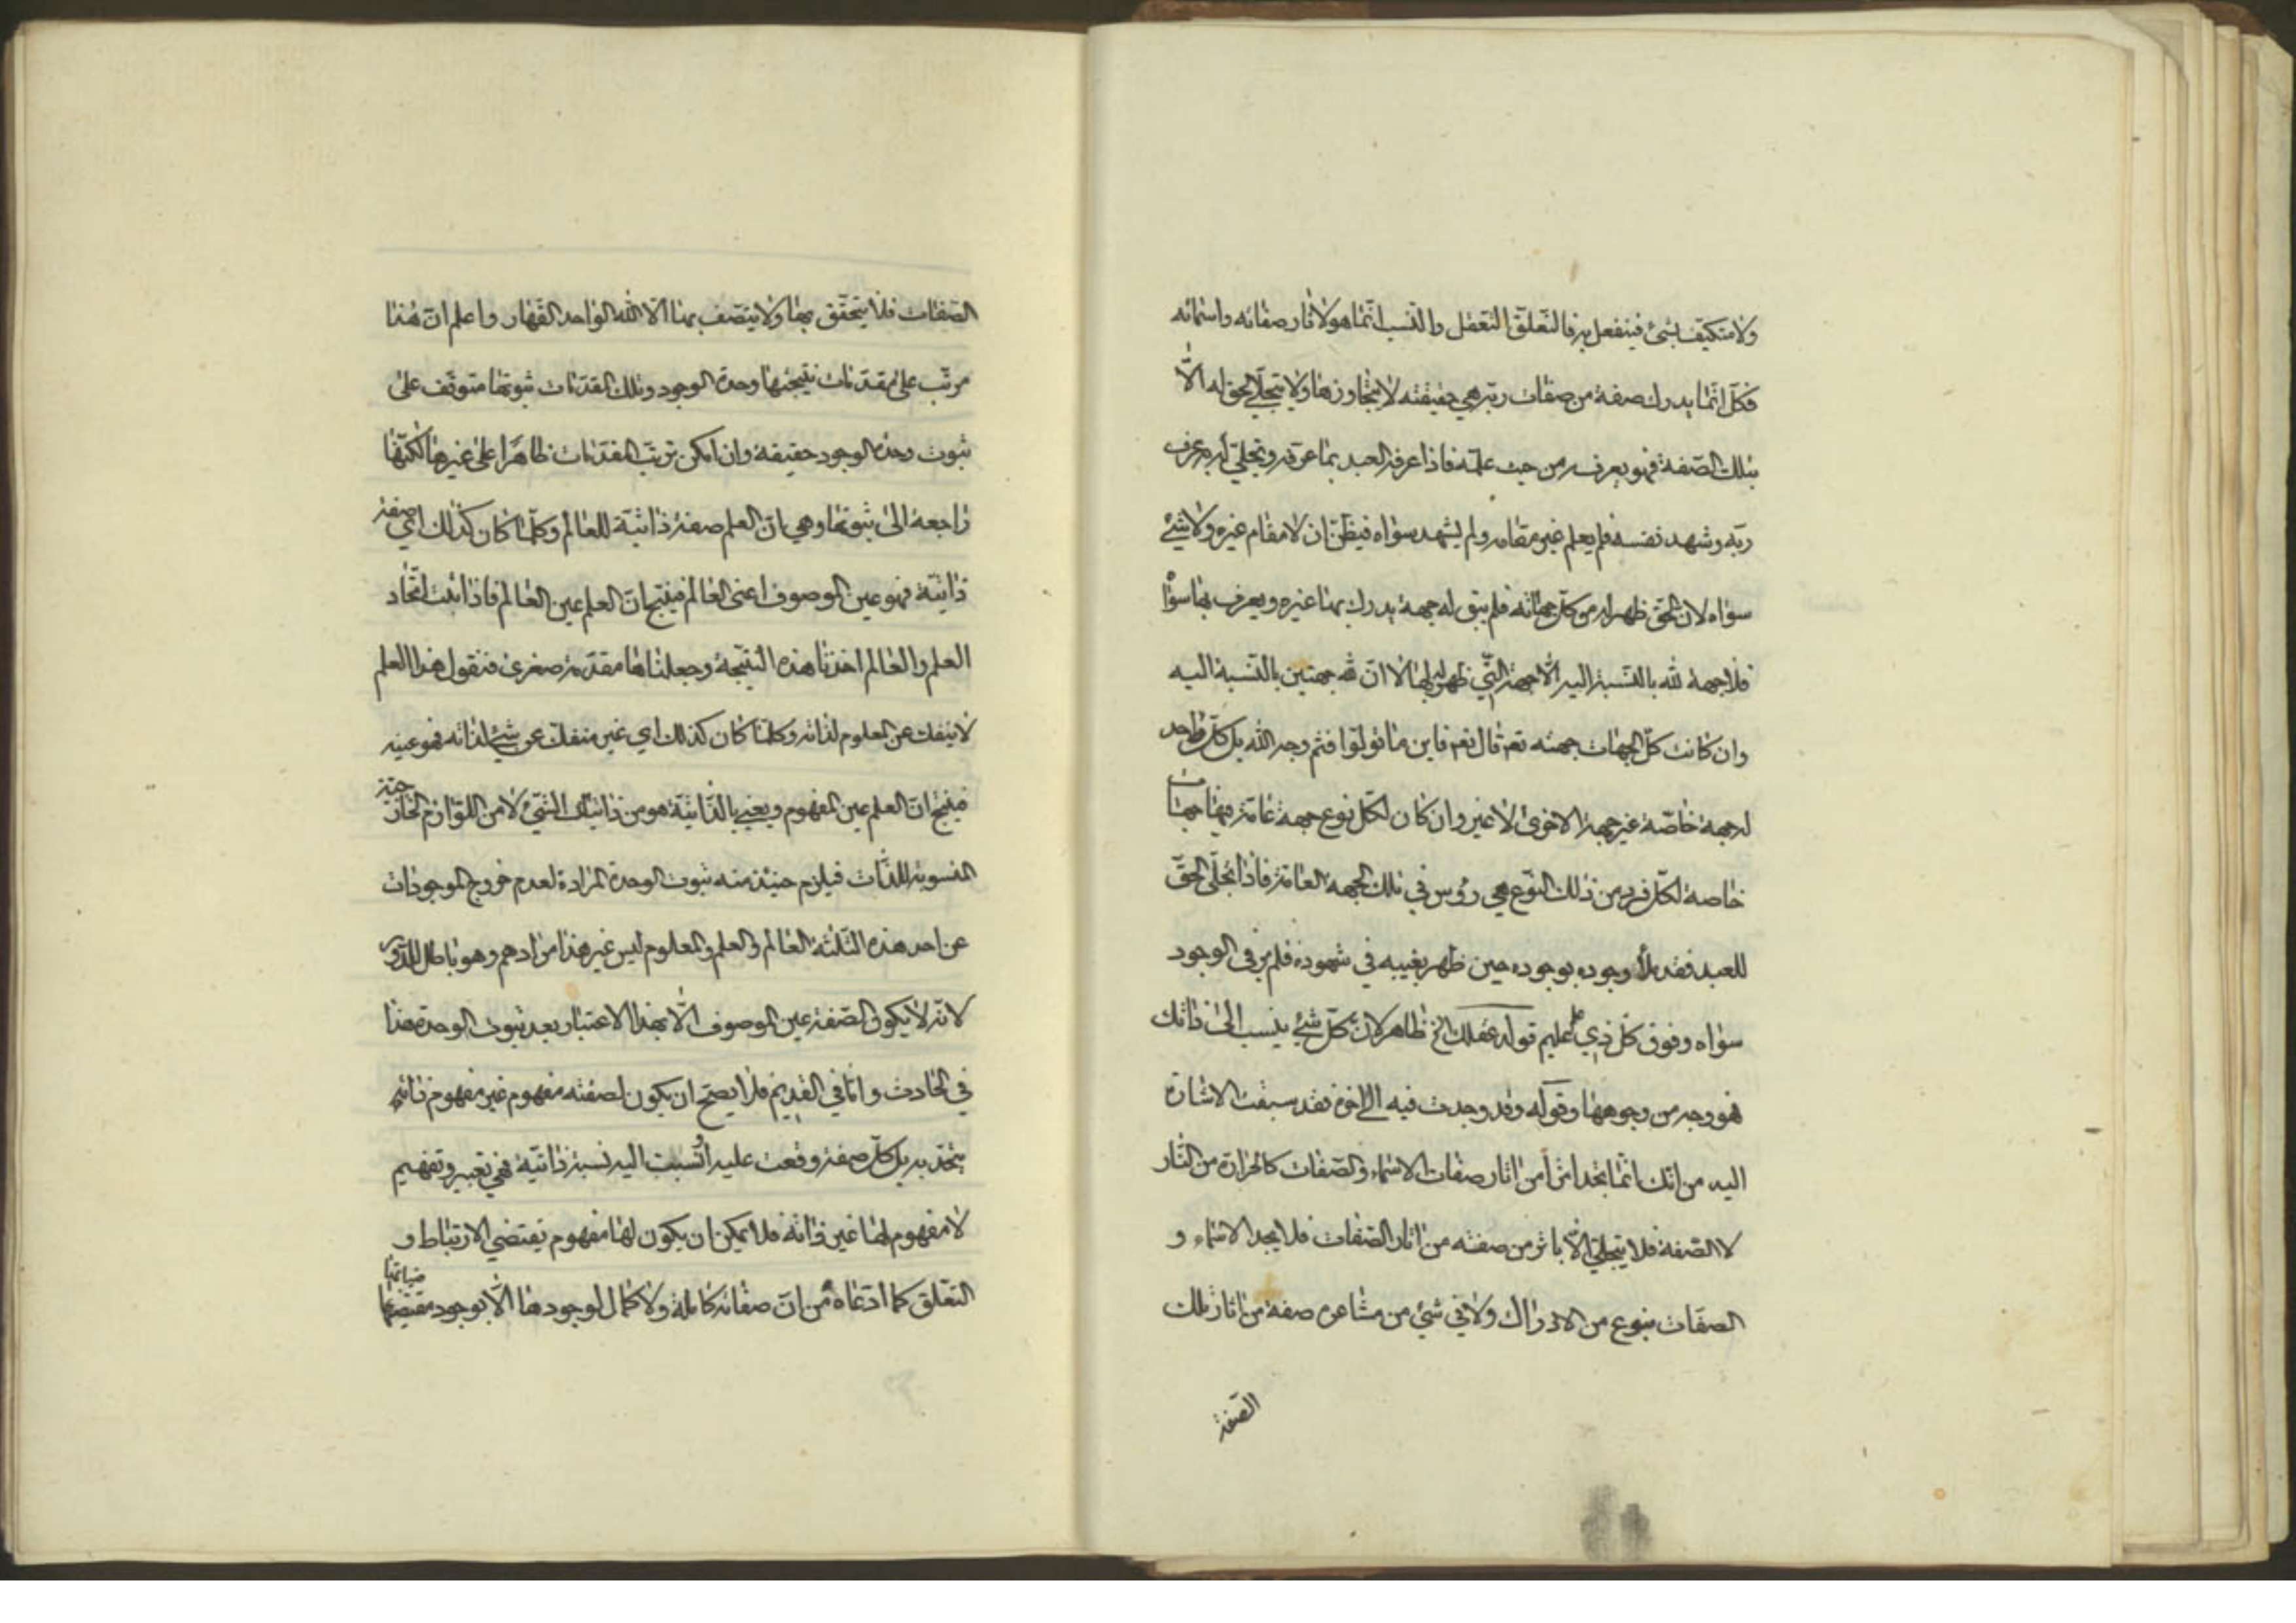 ولا متكيّف بشئ فينفعل به فالتعلّق التعقل والنسب انّما هو لاثار صفاته واسمائه
فكلّ انّما يدرك صفة من صفات ربّه هي حقيقته لا يتجاوزها ولا يتجلّى الحق له الّا
بتلك الصّفة فهو يعرفه من حيث علمه فاذا عرفه العبد بما عرّفه وتجلّى له به عرف
ربّه وشهد نفسه فلم يعلم غير مقامه ولم يشهد سواه فيظنّ ان لا مقام غيره ولا شئ
سواه لان الحقّ ظهر له من كلّ جهاته فلم يبق له جهة يدرك بها غيره ويعرف بها سوا
فلا جهة لله بالنّسبة اليه الّا جهة الّتي ظهر له بها لا انّ لله جهتين بالنّسبة اليه
وان كانت كلّ الجهات جهته تعه قال تعه فاين ما تولّوا فثم وجه الله بل كلّ واحد
له جهة خاصّة غير جهة الاخرى لا غير وان كان لكلّ نوع جهة عامّة فيها جهات
خاصة لكلّ فرد من ذلك النّوع هي رؤس في تلك الجهة العامّة فاذا تجلّى الحقّ
للعبد فقد ملأ وجوده بوجوده حين ظهر بغيبه في شهوده فلم ير في الوجود
سواه وفوق كلّ ذي علم عليم قوله عقلك الخ ظاهر لانّ كلّ شئ ينسب الى ذاتك
فهو وجه من وجوهها وقوله وقد وجدت فيه الى اخره فقد سبقت الاشارة
اليه من انّك انّما تجد اثرا من اثار صفات الاسماء والصّفات كالحرارة من النّار
لا الصّفة فلا يتجلّى الّا باثر من صفته من اثار الصّفات فلا يجد الاسماء و
الصفات بنوع من الادراك ولا في شئ من مشاعره صفة من اثار تلك
الصّفة
الصّفات فلا يتحقّق بها ولا يتّصف بها الّا الله الواحد القهّار واعلم انّ هذا
مرتّب على مقدّمات نتيجتها وحدة الوجود وتلك المقدّمات ثبوتها متوقّف على
ثبوت وحدة الوجود حقيقة وان امكن ترتّب المقدّمات ظاهرا على غيرها لكنّها
راجعة الى ثبوتها وهي بانّ العلم صفة ذاتيّة للعالم وكلّما كان كذلك اي صفة
ذاتيّة فهو عين الموصوف اعني العالم فينتج انّ العلم عين العالم فاذا ثبت اتّحاد
العلم والعالم اخذنا هذه النتيجة وجعلناها مقدّمة صغرى فنقول هذا العلم
لا ينفك عن المعلوم لذاته وكلّما كان كذلك اي غير منفك عن شئ لذاته فهو عينه
فينتج انّ العلم عين المفهوم ويعني بالذّاتيّة هو من ذاتيّات الشّئ لا من اللّوازم الخارجيّة
المنسوبة للذّات فيلزم حينئذ منه ثبوت الوحدة المرادة لعدم خروج الموجودات
عن احد هذه الثلثة العالم والعلم والمعلوم ليس غير هذا مرادهم وهو باطل للدّور
لانّه لا يكون الصّفة عين الموصوف الّا بهذا الاعتبار بعد ثبوت الوحدة هذا
في الحادث وامّا في القديم فلا يصحّ ان يكون لصفته مفهوم غير مفهوم ذاته
يتّحد به بل كلّ صفة وقعت عليه او نُسبت اليه نسبة ذاتيّة فهي تعبير وتفهيم
لا مفهوم لها غير ذاته فلا يمكن ان يكون لها مفهوم يقتضي الارتباط و
التعلّق كما ادّعاه من انّ صفاته كاملة ولا كمال لوجودها الّا بوجود مقتضياتها